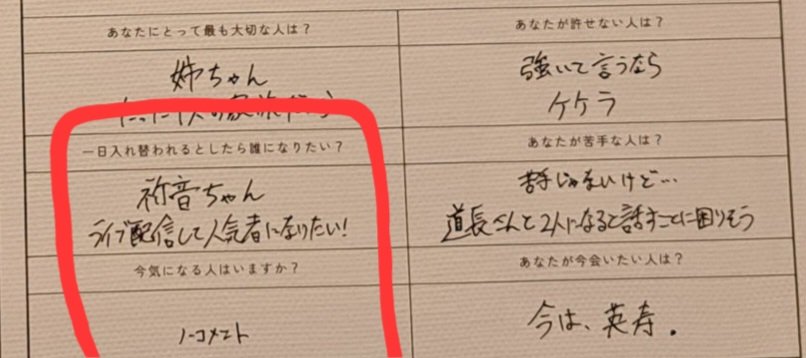 あなたにとって最も大切な人は？
姉ちゃん
たった1人の家族だから
あなたが許せない人は？
強いて言うなら
ケケラ
一日入れ替われるとしたら誰になりたい？
祢音ちゃん
ライブ配信して人気者になりたい！
あなたが苦手な人は？
苦手じゃないけど…
道長さんと2人になると話すことに困りそう
今気になる人はいますか？
ノーコメント
あなたが今会いたい人は？
今は、英寿．